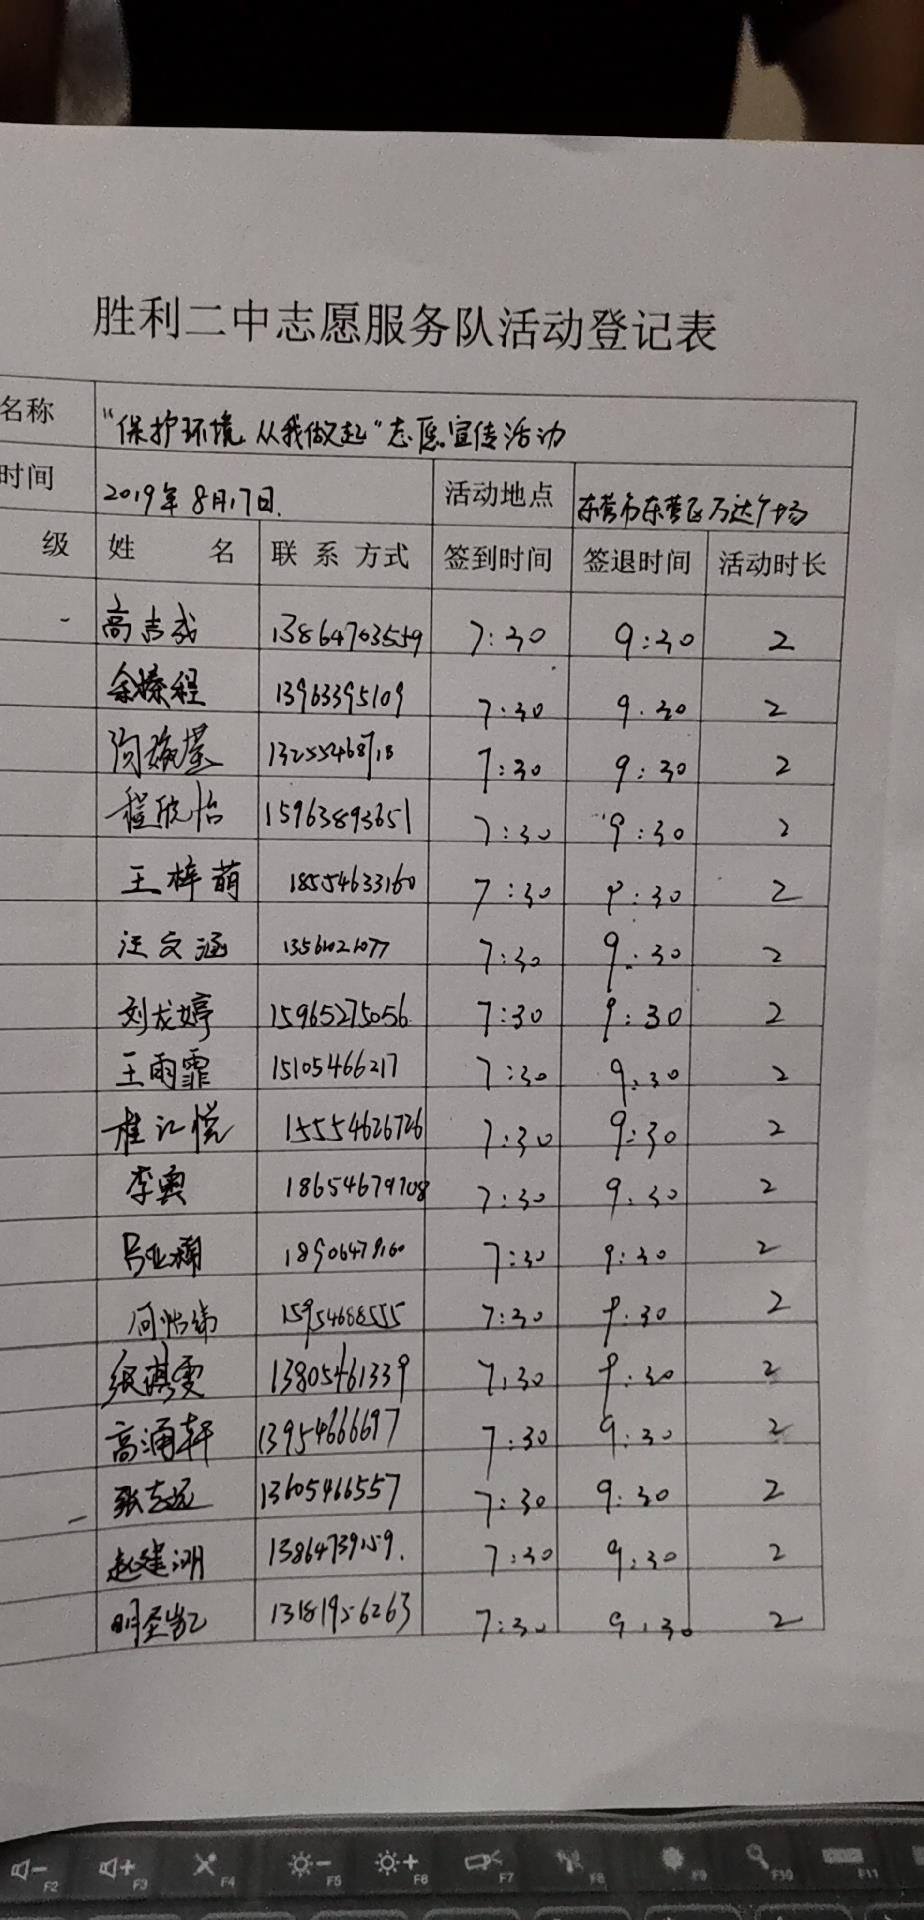 胜利二中志愿服务队活动登记表
名称 “保护环境 从我做起”志愿宣传活动
时间 2019年8月17日. 活动地点 东营市东营区万达广场
级 姓 名 联 系 方式 签到时间 签退时间 活动时长
高吉成 13864703559 7:30 9:30 2
余榛程 13963395109 7:30 9.30 2
13255468718 7:30 9:30 2
程欣怡 15963893651 7:30 9:30 2
王梓萌 18554633160 7:30 9:30 2
汪文涵 13561021077 7:30 9:30 2
刘龙婷 15965275056 7:30 9:30 2
王雨霏 15105466217 7:30 9:30 2
汇悦 15554626726 7:30 9:30 2
李奥 18654679708 7:30 9:30 2
吕亚楠 18906479160 7:30 9:30 2
何怡 15954688555 7:30 9:30 2
张祺雯 13805461339 7:30 9:30 2
高涌轩 13954666697 7:30 9:30 2
张志远 13605466557 7:30 9:30 2
赵建湖 13864739159. 7:30 9:30 2
明圣 13181956263 7:30 9:30 2
F2 F3 F4 F5 F6 F7 F8 F9 F10 F11